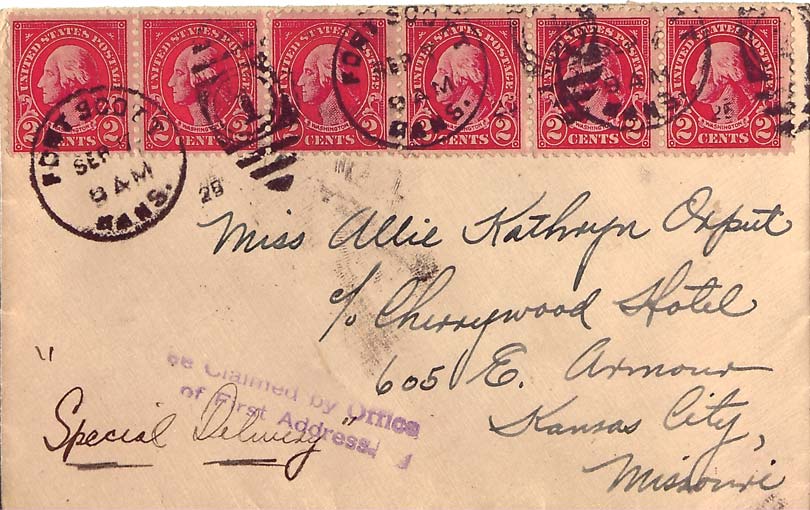 UNITED STATES POSTAGE UNITED STATES POSTAGE UNITED STATES POSTAGE UNITED STATES POSTAGE UNITED STATES POSTAGE UNITED STATES POSTAGE
WASHINGTON WASHINGTON WASHINGTON WASHINGTON WASHINGTON WASHINGTON
2 CENTS 2 2 CENTS 2 2 CENTS 2 2 CENTS 2 2 CENTS 2 2 CENTS 2
FORT SCOTT
SEP
9 AM
KANS.
FORT SCOTT
SEP
9 AM
KANS.
AM
KANS.
25
Miss Allie Kathryn Orput
c/o Cherrywood Hotel
605 E. Armour
Kansas City,
Missouri
"Special Delivery"
ee Claimed by Office
of First Address.